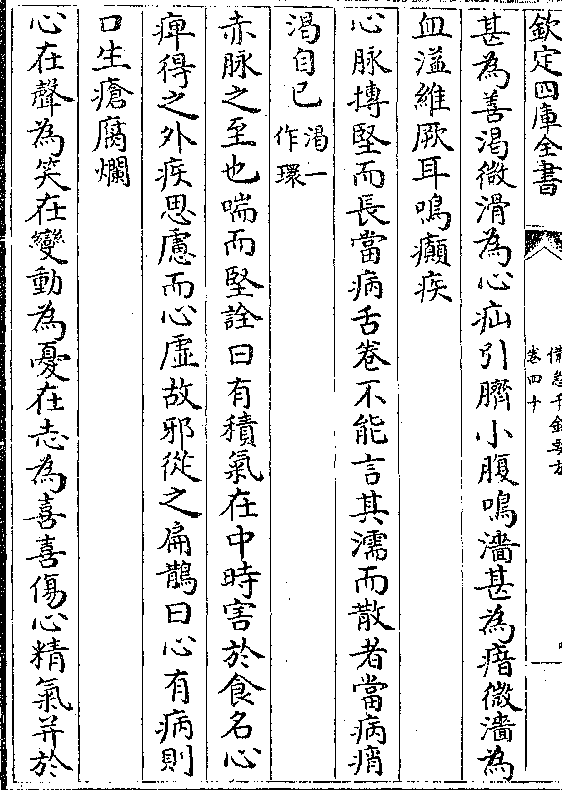 欽定四庫全書
備急千金要方
卷四十
甚為善渴微滑為心疝引臍小腹鳴濇甚為瘖微濇為
血溢維厥耳鳴癲疾
心脉摶堅而長當病舌卷不能言其濡而散者當病痟
渴自已渴一作環
赤脉之至也喘而堅詮曰有積氣在中時害於食名心
痺得之外疾思慮而心虛故邪從之扁鵲曰心有病則
口生瘡腐爛
心在聲為笑在變動為憂在志為喜喜傷心精氣并於